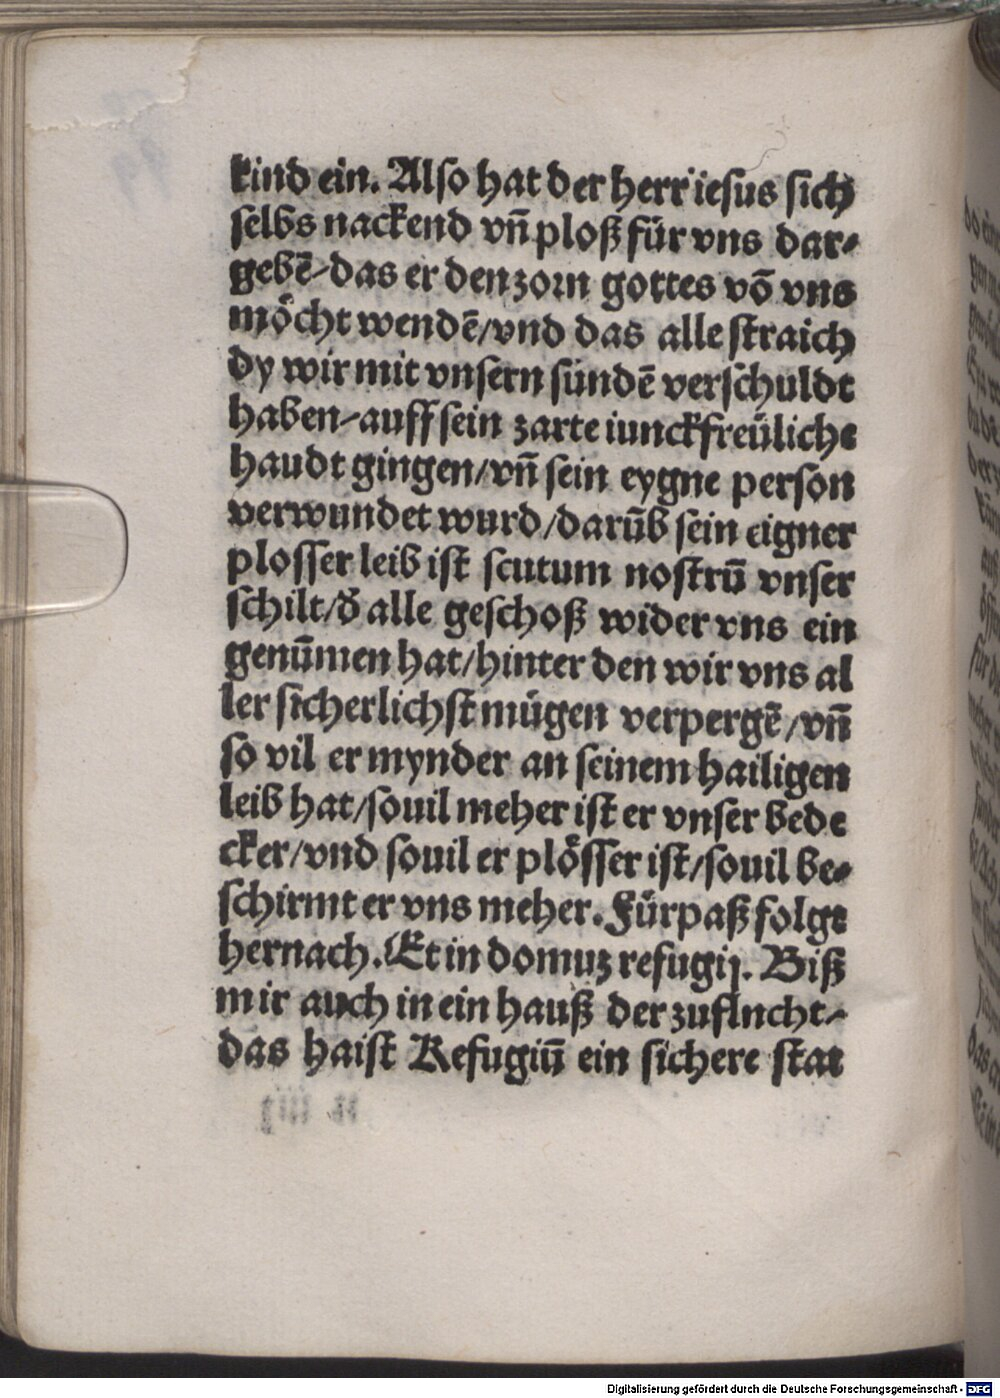 kind ein. Also hat der herr iesus sich
selbs nackend vn̄ ploß für vns dar⸗
gebē⸗das er den zorn gottes vō vns
möcht wendē/vnd das alle straich
dy wir mit vnsern sündē verschuldt
haben⸗auff sein zarte iunckfreüliche
haudt gingen/vn̄ sein eygne person
verwundet wurd/darūb sein eigner
plosser leib ist scutum nostrū vnser
schilt/d̄ alle geschoß wider vns ein
genūmen hat/hinter den wir vns al
ler sicherlichst mügen verpergē/vn̄
so vil er mynder an seinem hailigen
leib hat/souil meher ist er vnser bede
cker/vnd souil er plösser ist/souil be⸗
schirmt er vns meher. Fürpaß folgt
hernach. Et in domuz refugij. Biß
mir auch in ein hauß der zuflncht⸗
das haist Refugiū ein sichere stat
Digitalisierung gefördert durch die Deutsche Forschungsgemeinschaft - DFG